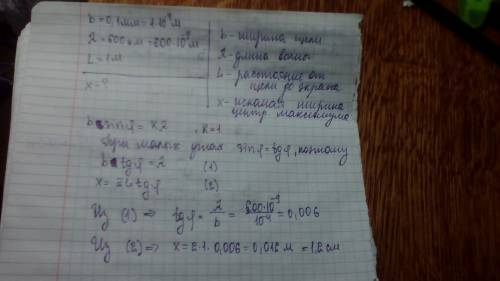 b = 0,1 мм = 1·10⁻⁴ м
λ = 600 нм = 600·10⁻⁹ м
L = 1 м
x - ?
b - ширина щели
λ - длина волны
L - расстояние от
щели до экрана
x - искомая ширина
центр. максимума
b sin φ = kλ , k = 1
При малых углах sin φ = tg φ, поэтому
b tg φ = λ (1)
x = 2L tg φ (2)
Из (1) ⇒ tg φ = λ/b = 600·10⁻⁹/10⁻⁴ = 0,006
Из (2) ⇒ x = 2·1·0,006 = 0,012 м = 1,2 см